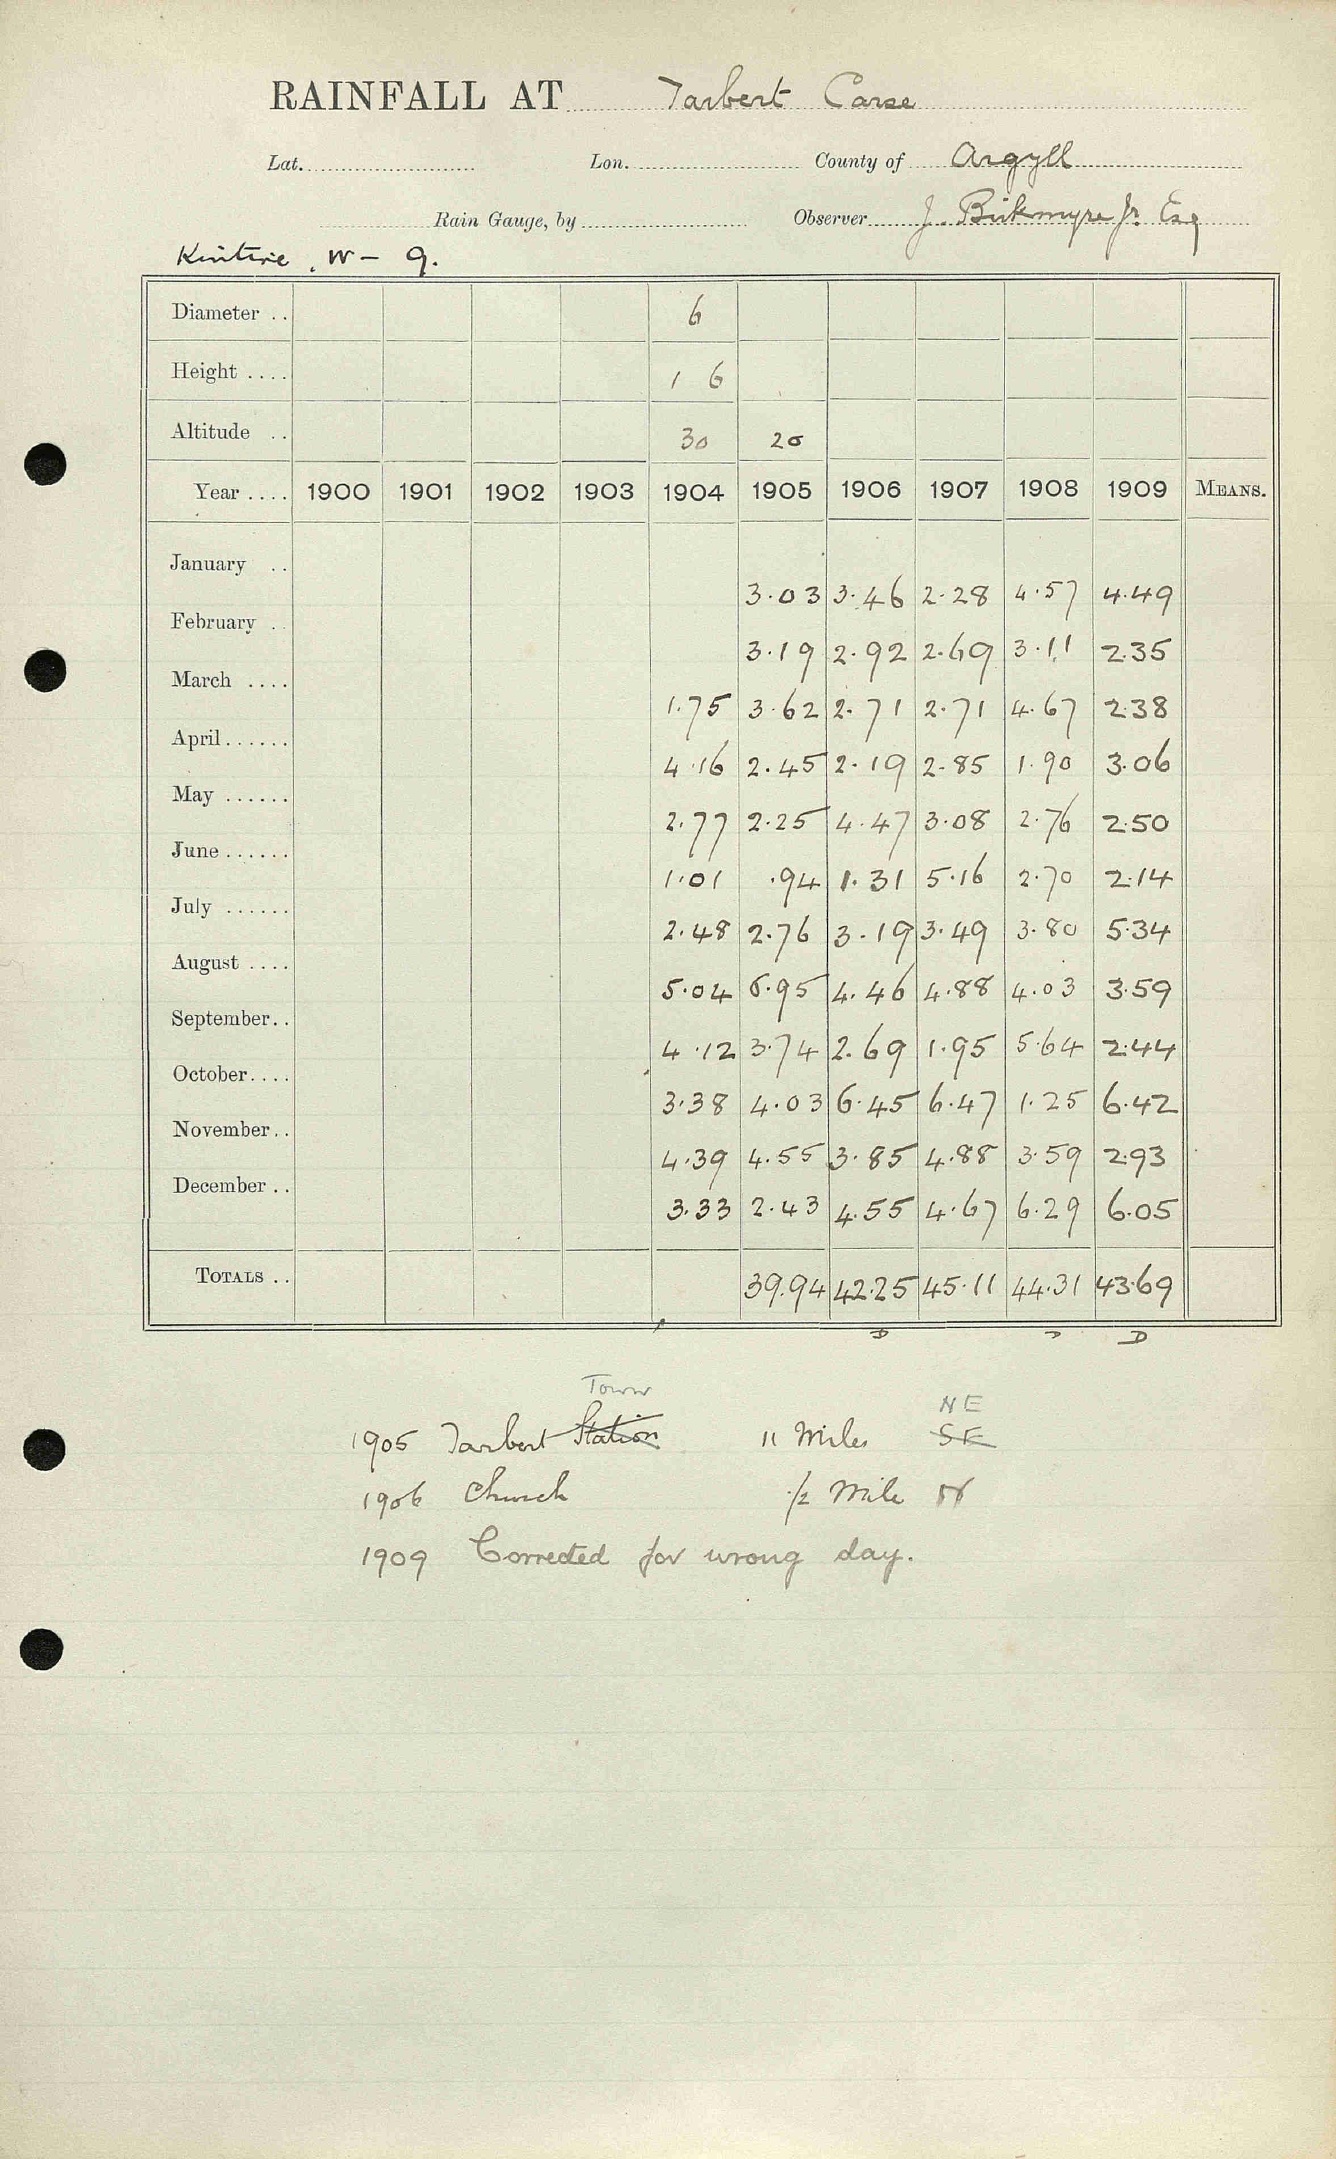 RAINFALL AT Tarbert Carse
Lat. Lon. County of Argyll
Rain Gauge, by Observer J. Birkmyre Jr. Esq
Kintire, W – 9.
Diameter .. 6
Height .... 1 6
Altitude .. 30 20
Year .... 1900 1901 1902 1903 1904 1905 1906 1907 1908 1909 MEANS.
January .. 3.03 3.46 2.28 4.57 4.49
February .. 3.19 2.92 2.69 3.11 2.35
March .... 1.75 3.62 2.71 2.71 4.67 2.38
April...... 4.16 2.45 2.19 2.85 1.90 3.06
May ...... 2.77 2.25 4.47 3.08 2.76 2.50
June...... 1.01 .94 1.31 5.16 2.70 2.14
July ...... 2.48 2.76 3.19 3.49 3.80 5.34
August .... 5.04 6.95 4.46 4.88 4.03 3.59
September.. 4.12 3.74 2.69 1.95 5.64 2.44
October.... 3.38 4.03 6.45 6.47 1.25 6.42
November.. 4.39 4.55 3.85 4.88 3.59 2.93
December.. 3.33 2.43 4.55 4.67 6.29 6.05
TOTALS .. 39.94 42.25 45.11 44.31 43.69
D D D
Town NE
1905 Tarbert Station 11 Miles SE
1906 Church 1/2 Mile N
1909 Corrected for wrong day.